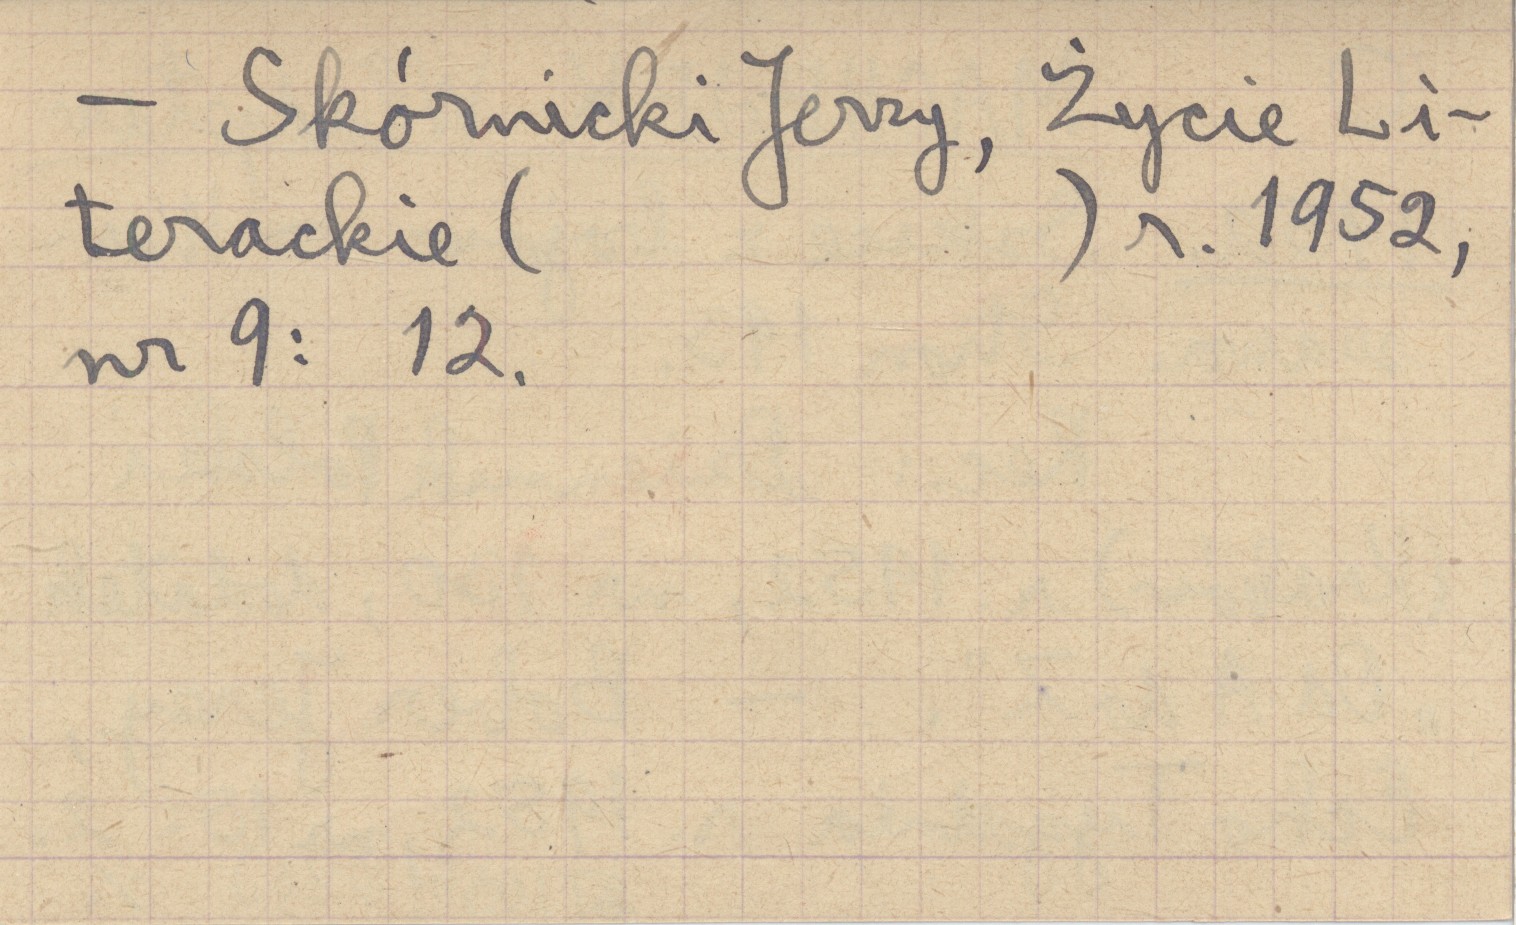 — Skórnicki Jerzy, Życie Li-
terackie ( ) r. 1952,
nr 9: 12.